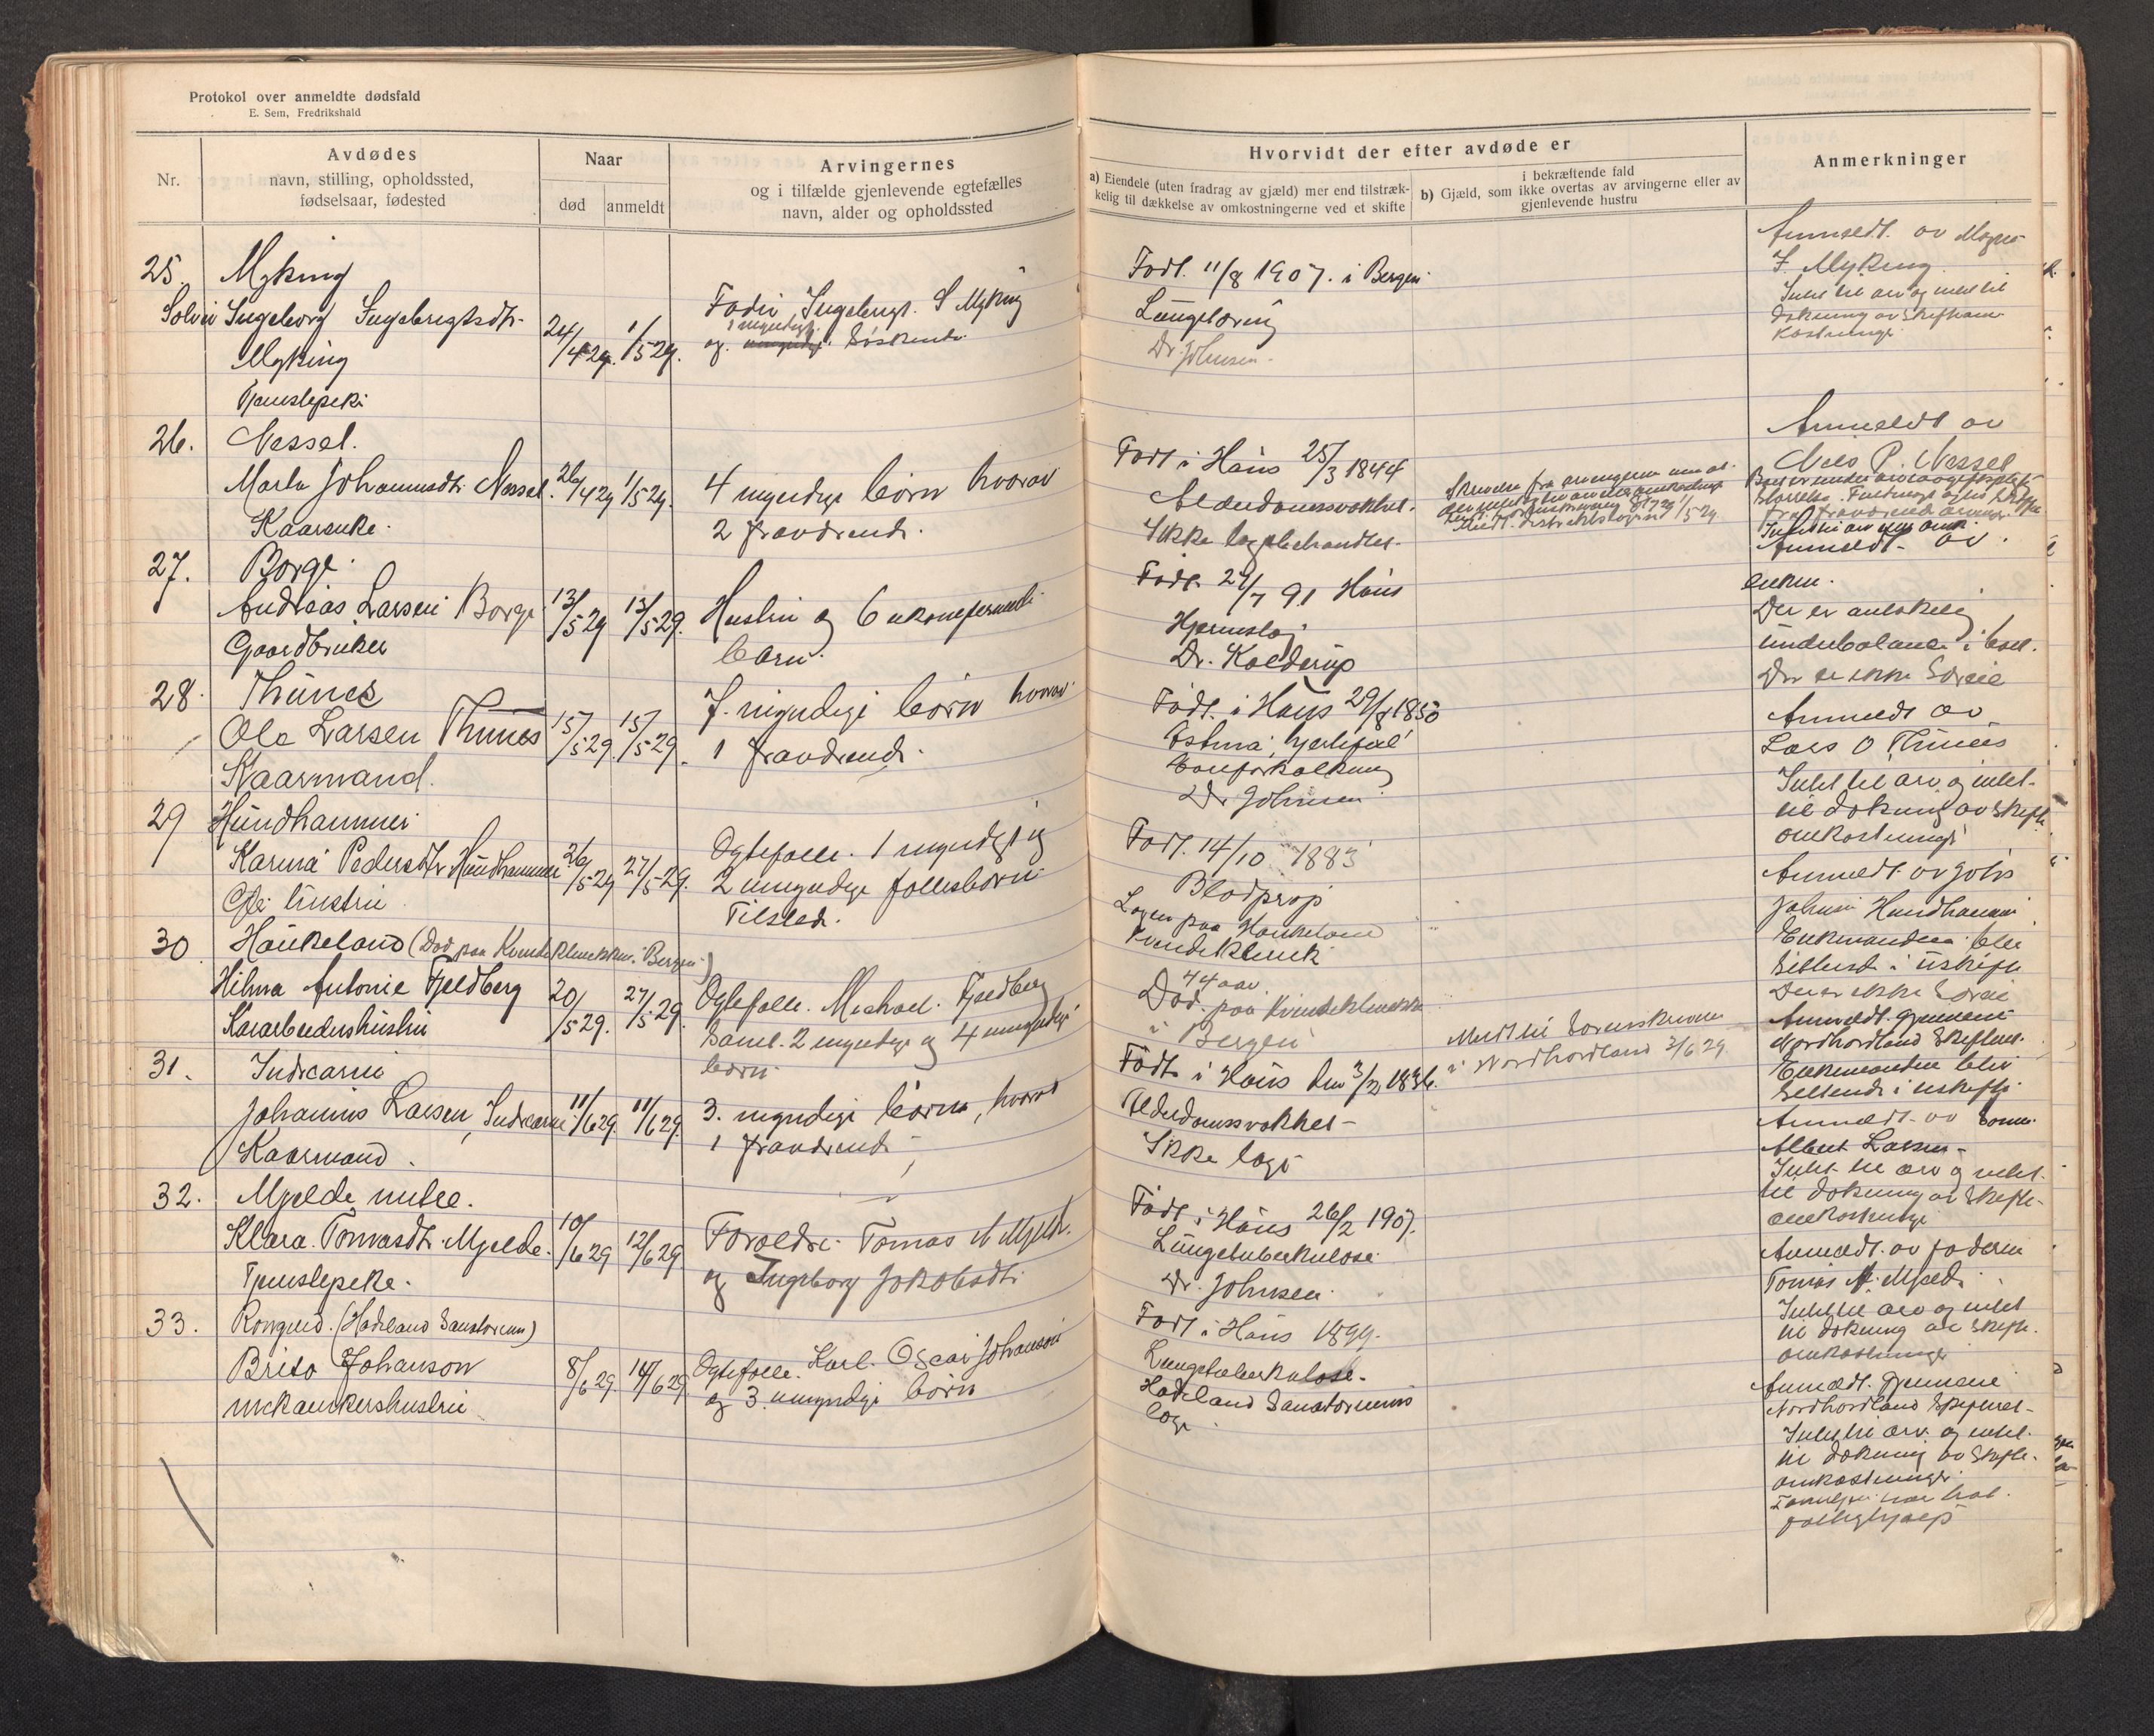 Protokol over anmeldte dødsfald
E. Sem, Fredrikshald
Nr.
Avdødes
navn, stilling, opholdssted,
fødselsaar, fødested
Naar
død
anmeldt
Arvingernes
og i tilfælde gjenlevende egtefælles
navn, alder og opholdssted
Hvorvidt der efter avdøde er
a) Eiendele (uten fradrag av gjæld) mer end tilstræk-
kelig til dækkelse av omkostningerne ved et skifte
i bekræftende fald
b) Gjæld, som ikke overtas av arvingerne eller av
gjenlevende hustru
Anmerkninger
25. Myking
Ingeborg Ingebrigtsdtr.
Myking
Tjenstepike
24/4 29. 1/5 29.
Fader Ingebrigt. S Myking
og søskende
Født. 11/8 1907. i Bergen
Dr. Johnsen.
Anmeldt. av
Myking
Intet til arv og intet til
dækning av skifteom-
kostninger
26. Nessel.
Marta Johannesdtr. Nessel.
Kaarenke.
26/4 29 1/5 29.
4 myndige børn hvorav
2 fraværende.
Født i Haus 25/3 1844
Alderdomssvakhet.
Ikke lægebehandlet.
1/5 29
Anmeldt av
Nils P. Nessel
27. Borge.
Andreas Larsen Borge
Gaardbruker
13/5 29 13/5 29.
Hustru og 6 ukonfirmerte
barn.
Født. 27/7 91 Haus
Hjerneslag
Dr. Kolderup
Anmeldt av
enken.
Der er antakelig
underbalance i boet.
Der er ikke særeie
28. Thunes
Ola Larsen Thunes
Kaarmand.
15/5 29. 15/5 29.
7. myndige børn hvorav
1 fraværende.
Født. i Haus 29/8 1850
Astma, hjertefeil
Dr. Johnsen
Anmeldt av
Lars O Thunes
Intet til arv og intet
til dækning av skifte
omkostninger
29 Hundhammer
Karina Pedersdtr. Hundhammer
hustru
26/5 29 27/5 29.
Egtefælle. 1 myndig og
2 umyndige fællesbørn
Tilsted.
Født. 14/10 1883
Blodprop
Lægen paa Haukeland
Kvindeklinik
Anmeldt av Johs
Johnsen Hundhammer
Enkemanden blir
sittende i uskifte
Der er ikke særeie
30. Haukeland (Død paa Kvindeklinikken i Bergen)
Hilma Antonie Fjeldberg
20/5 29. 27/5 29.
Egtefælle. Michael. Fjeldberg
samt. 2 myndige og 4 umyndige
børn.
44 aar.
Død paa Kvindeklinikken
i Bergen
Meldt til Sorenskriveren
i Nordhordland 3/6 29.
Anmeldt. gjennem
Nordhordland Skifteret.
Enkemanden blir
sittende i uskifte
31. Indrearne
Johannes Larsen, Indrearne
Kaarmand.
11/6 29. 11/6 29.
3. myndige børn, hvorav
1 fraværende
Født i Haus den 3/2 1836.
Alderdomssvakhet
Ikke læge
Anmeldt. av sønnen
Albert Larsen
Intet til arv og intet
til dækning av skifte-
omkostninger
32. Mjelde mitre.
Klara. Tomasdtr. Mjelde.
Tjenstepike.
10/6 29 12/6 29
Forældre Tomas N Mjelde.
og Ingeborg Jakobsdtr.
Født i Haus 26/2 1907.
Lungetuberkulose
Dr. Johnsen.
Anmeldt. av faderen
Tomas N. Mjelde
Intet til arv og intet
til dækning av skifte.
omkostninger
33. (Hadeland Sanatorium)
Brita Johanson
mekanikershustru
8/6 29. 14/6 29.
Egtefælle. Karl. Oscar Johanson
og 3. umyndige børn
Født i Haus 1899.
Lungetuberkulose.
Hadeland Sanatoriums
læge
Anmeldt. gjennem
Nordhordland Skifteret-
Intet til arv. og intet.
til dækning av skifte.
omkostninger
Familien har hat
fattighjælp